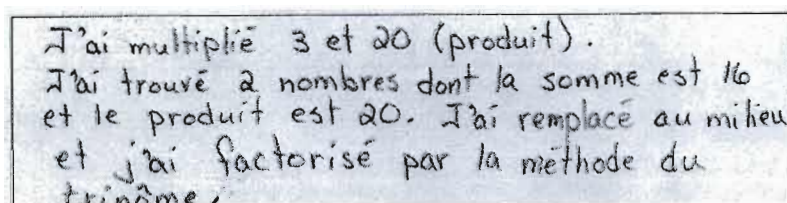 J'ai multiplié 3 et 20 (produit).
J'ai trouvé 2 nombres dont la somme est 16
et le produit est 20. J'ai remplacé au milieu
et j'ai factorisé par la méthode du
trinôme.